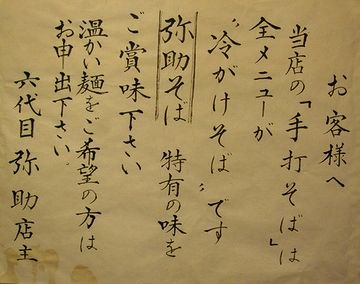 お客様へ
当店の「手打そば」は
全メニューが
"冷がけそば"です
弥助そば 特有の味を
ご賞味下さい
温かい麺をご希望の方は
お申出下さい。
六代目 弥助店主